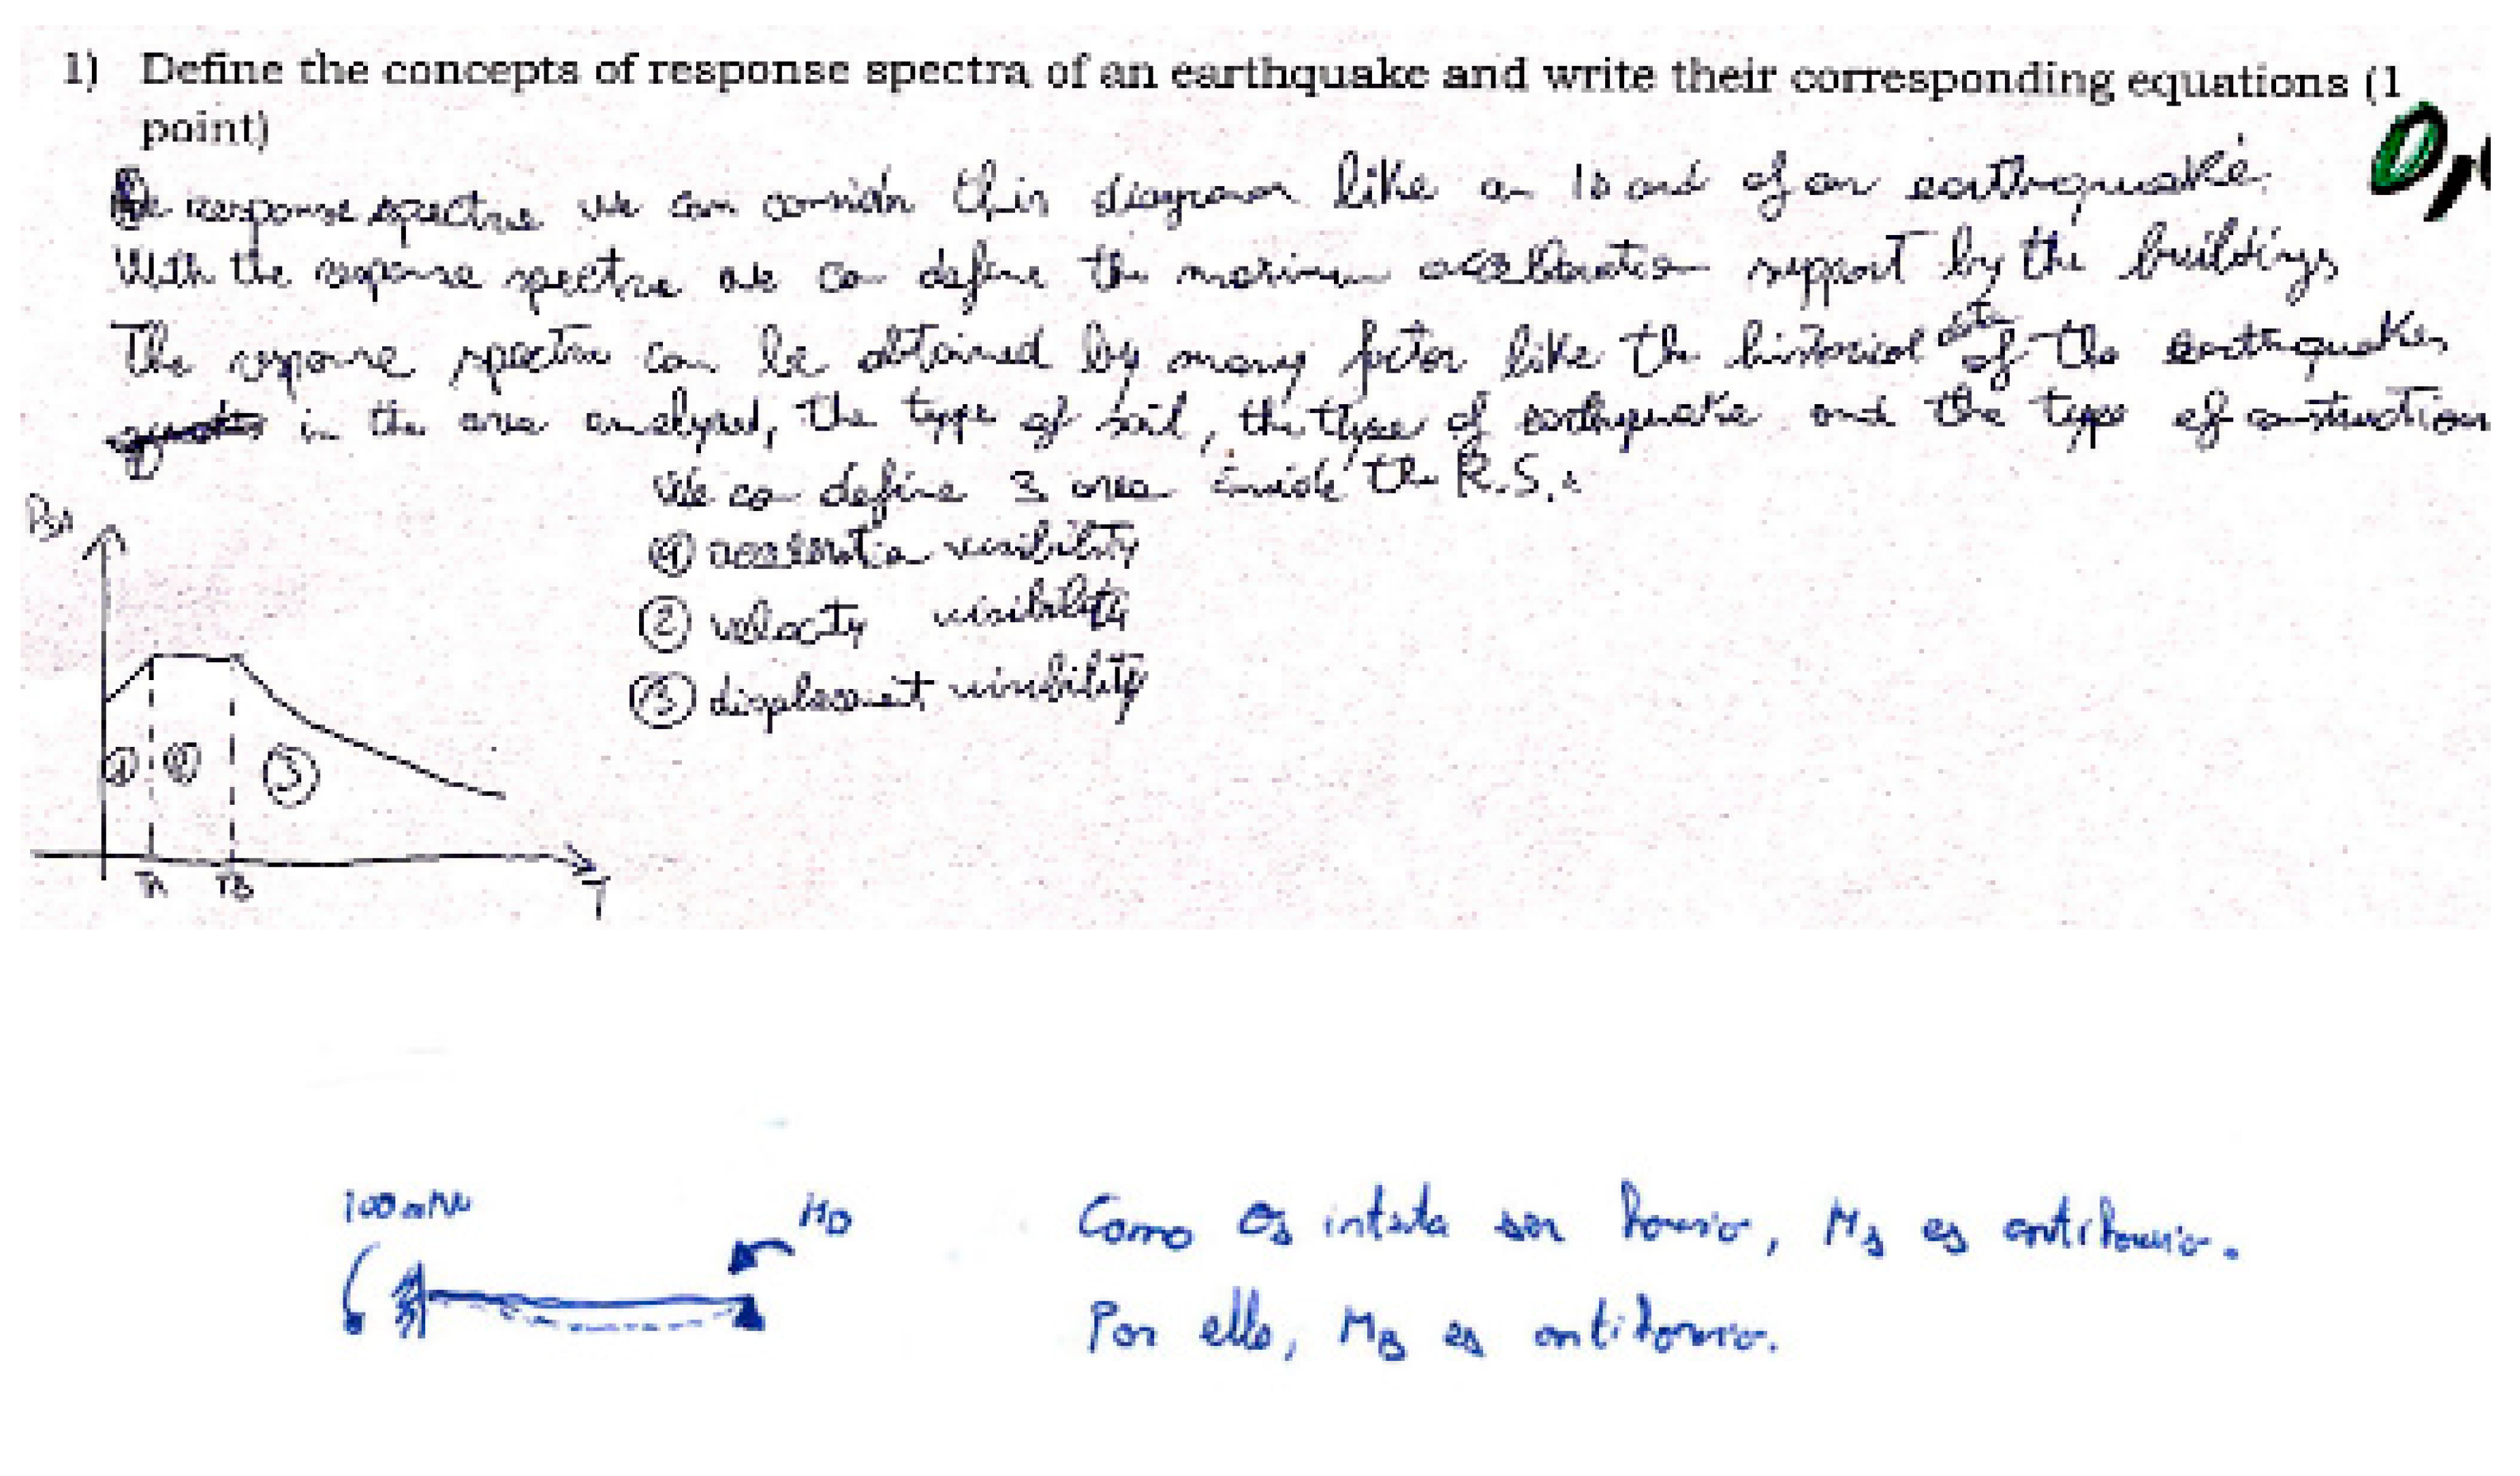 1) Define the concepts of response spectra of an earthquake and write their corresponding equations (1
point)
0,
response spectrum we can consider this diagram like an id card of an earthquake.
With the response spectrum we can define the maximum acceleration support by the buildings
The response spectrum can be obtained by many factor like the historical data of the earthquakes
in the area analysed, the type of soil, the type of earthquake and the type of construction
We can define 3 area inside the R.S.:
① acceleration
② velocity
③ displacement
① ② ③
TA TB T
100 MD
Como intenta ser horario, es antihorario.
Por ello, MB es antihorario.